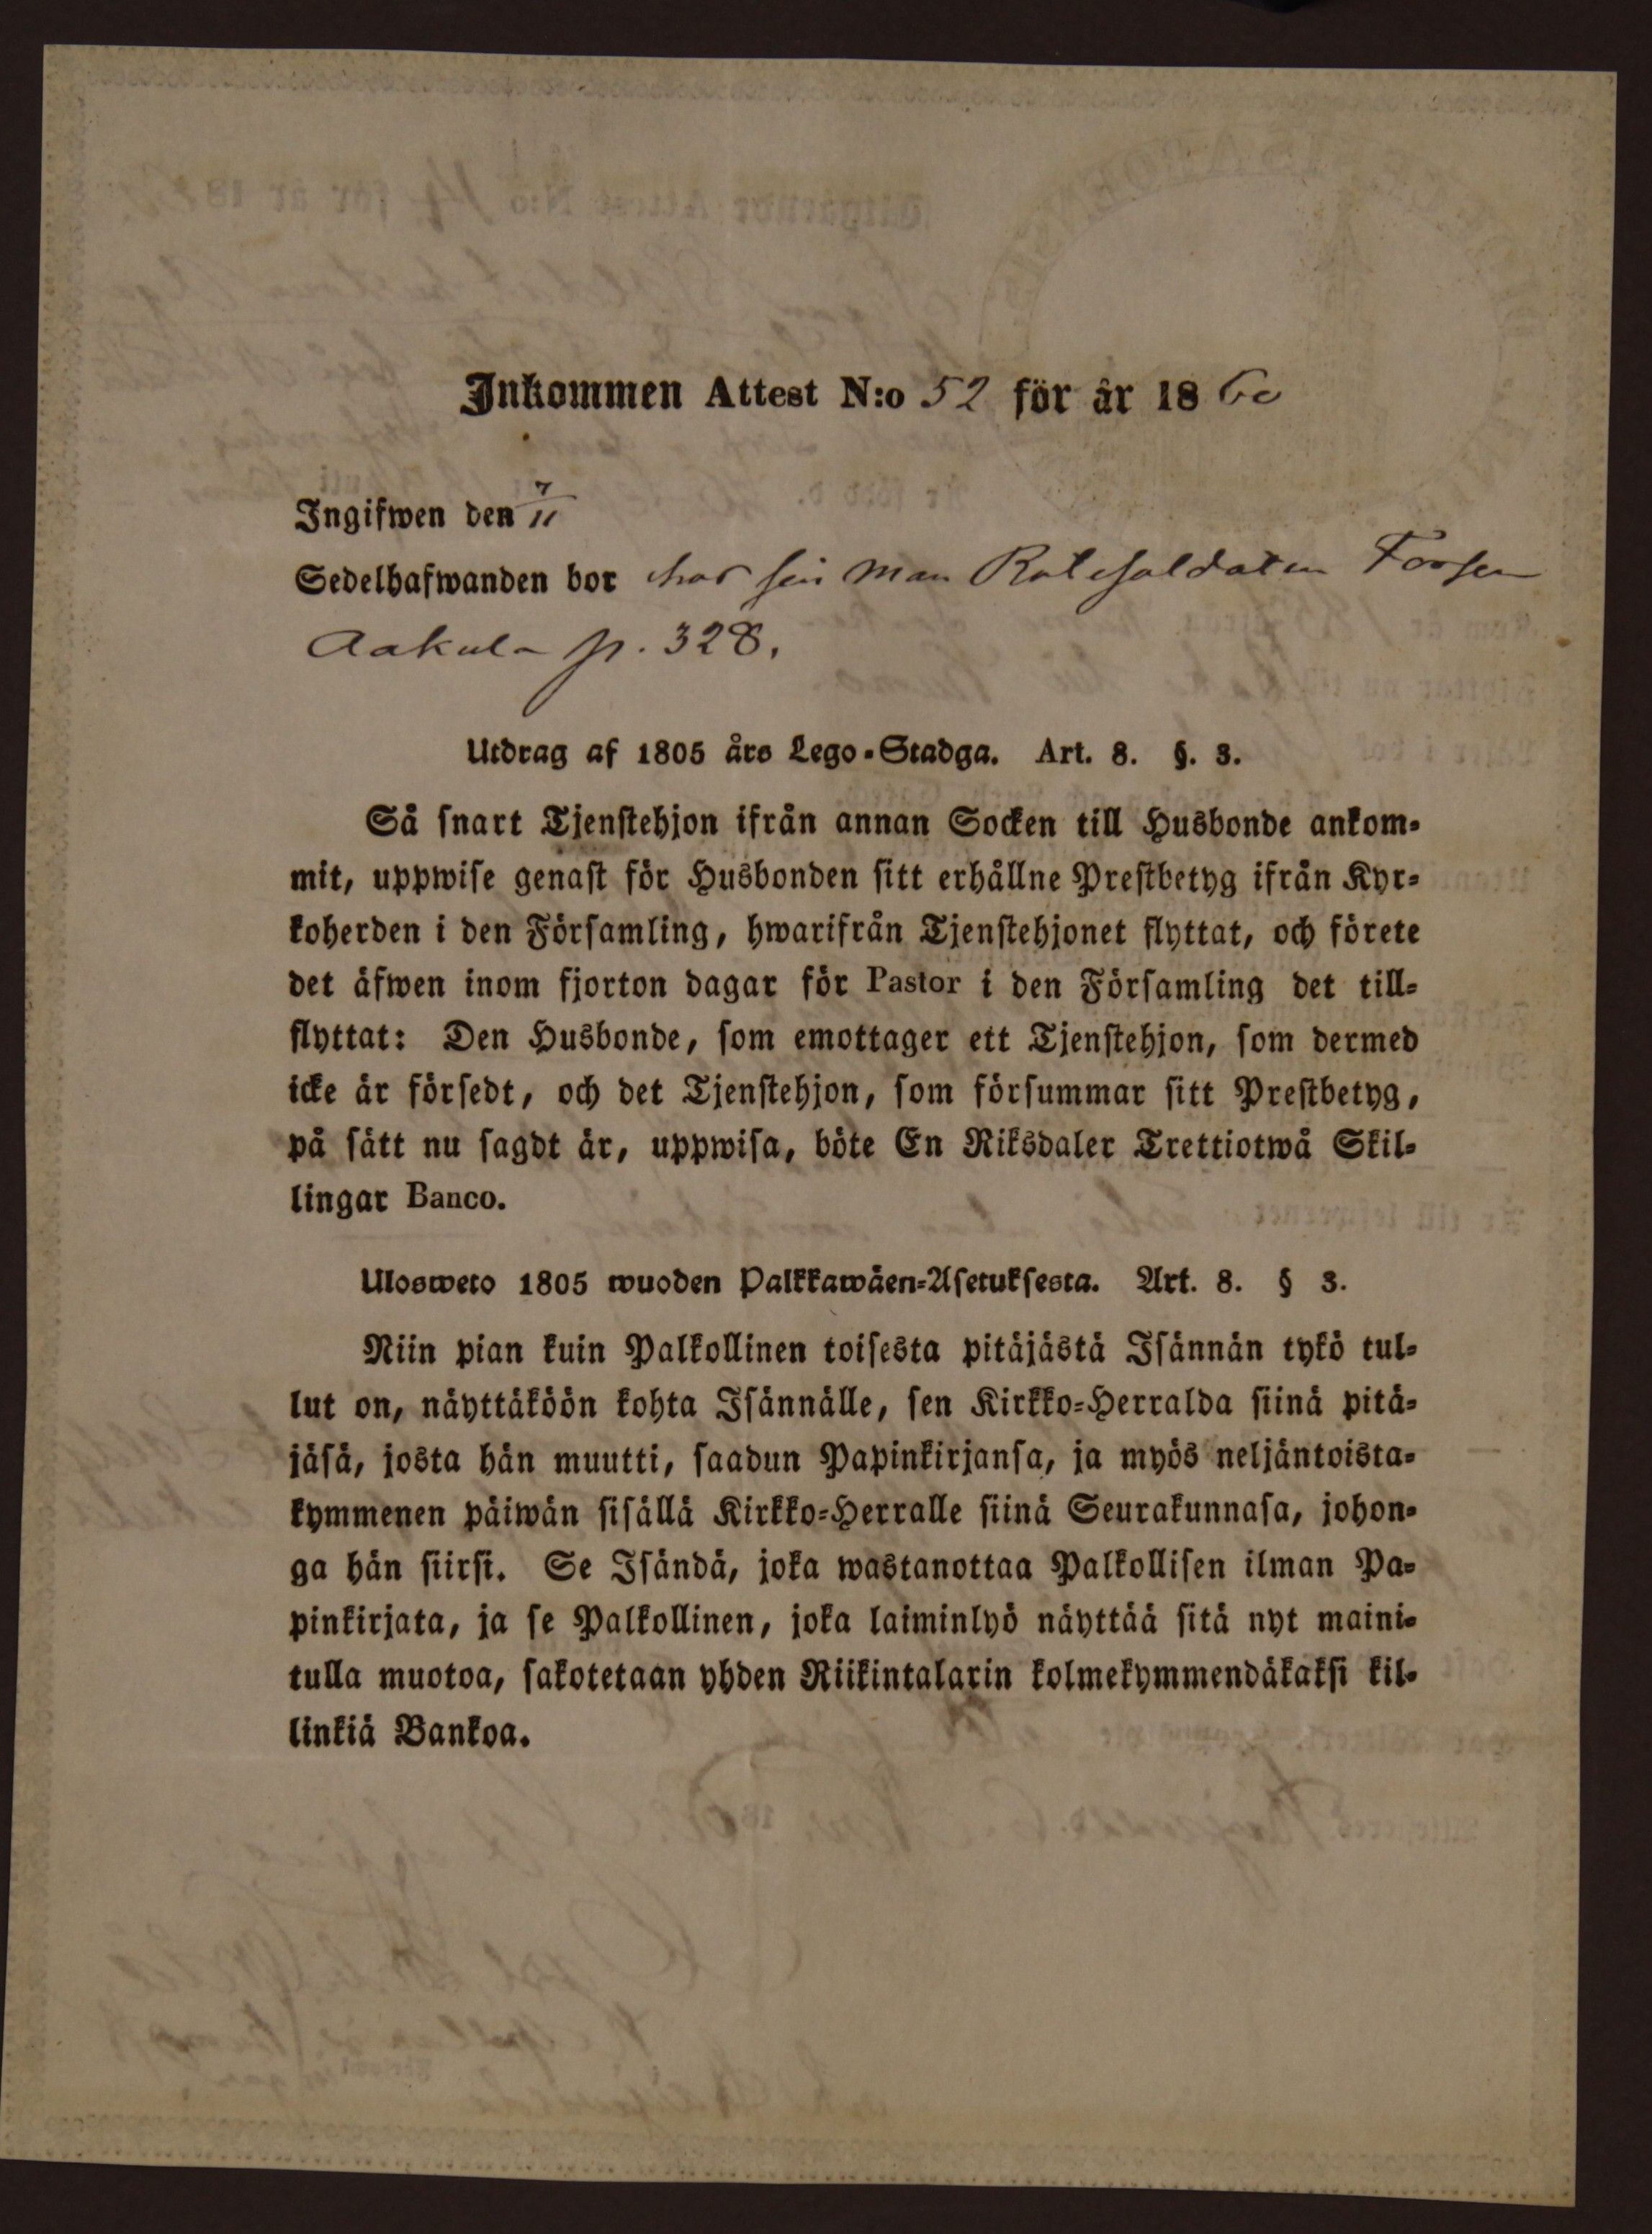 Inkommen Attest N:o 52 för år 1860
Ingifwen den 7/11
Sedelhafwanden bor hos sin man Rotesoldaten Forsen
Aakula p. 328.
Utdrag af 1805 års Lego-Stadga. Art. 8. §. 3.
Så snart Tjenstehjon ifrån annan Socken till Husbonde ankom-
mit, uppwise genast för Husbonden sitt erhållne Prestbetyg ifrån Kyr-
koherden i den Församling, hwarifrån Tjenstehjonet flyttat, och förete
det äfwen inom fjorton dagar för Pastor i den Församling det till-
flyttat: Den Husbonde, som emottager ett Tjenstehjon, som dermed
icke är försedt, och det Tjenstehjon, som försummar sitt Prestbetyg,
på sätt nu sagdt är, uppwisa, böte En Riksdaler Trettiotwå Skil-
lingar Banco.
Ulosweto 1805 wuoden Palkkawäen-Asetuksesta. Art. 8. § 3.
Niin pian kuin Palkollinen toisesta pitäjästä Isännän tykö tul-
lut on, näyttäköön kohta Isännälle, sen Kirkko-Herralda siinä pitä-
jäsä, josta hän muutti, saadun Papinkirjansa, ja myös neljäntoista-
kymmenen päiwän sisällä Kirkko-Herralle siinä Seurakunnasa, johon-
ga hän siirsi. Se Isändä, joka wastanottaa Palkollisen ilman Pa-
pinkirjata, ja se Palkollinen, joka laiminlyö näyttää sitä nyt maini-
tulla muotoa, sakotetaan yhden Riikintalarin kolmekymmendäkaksi kil-
linkiä Bankoa.